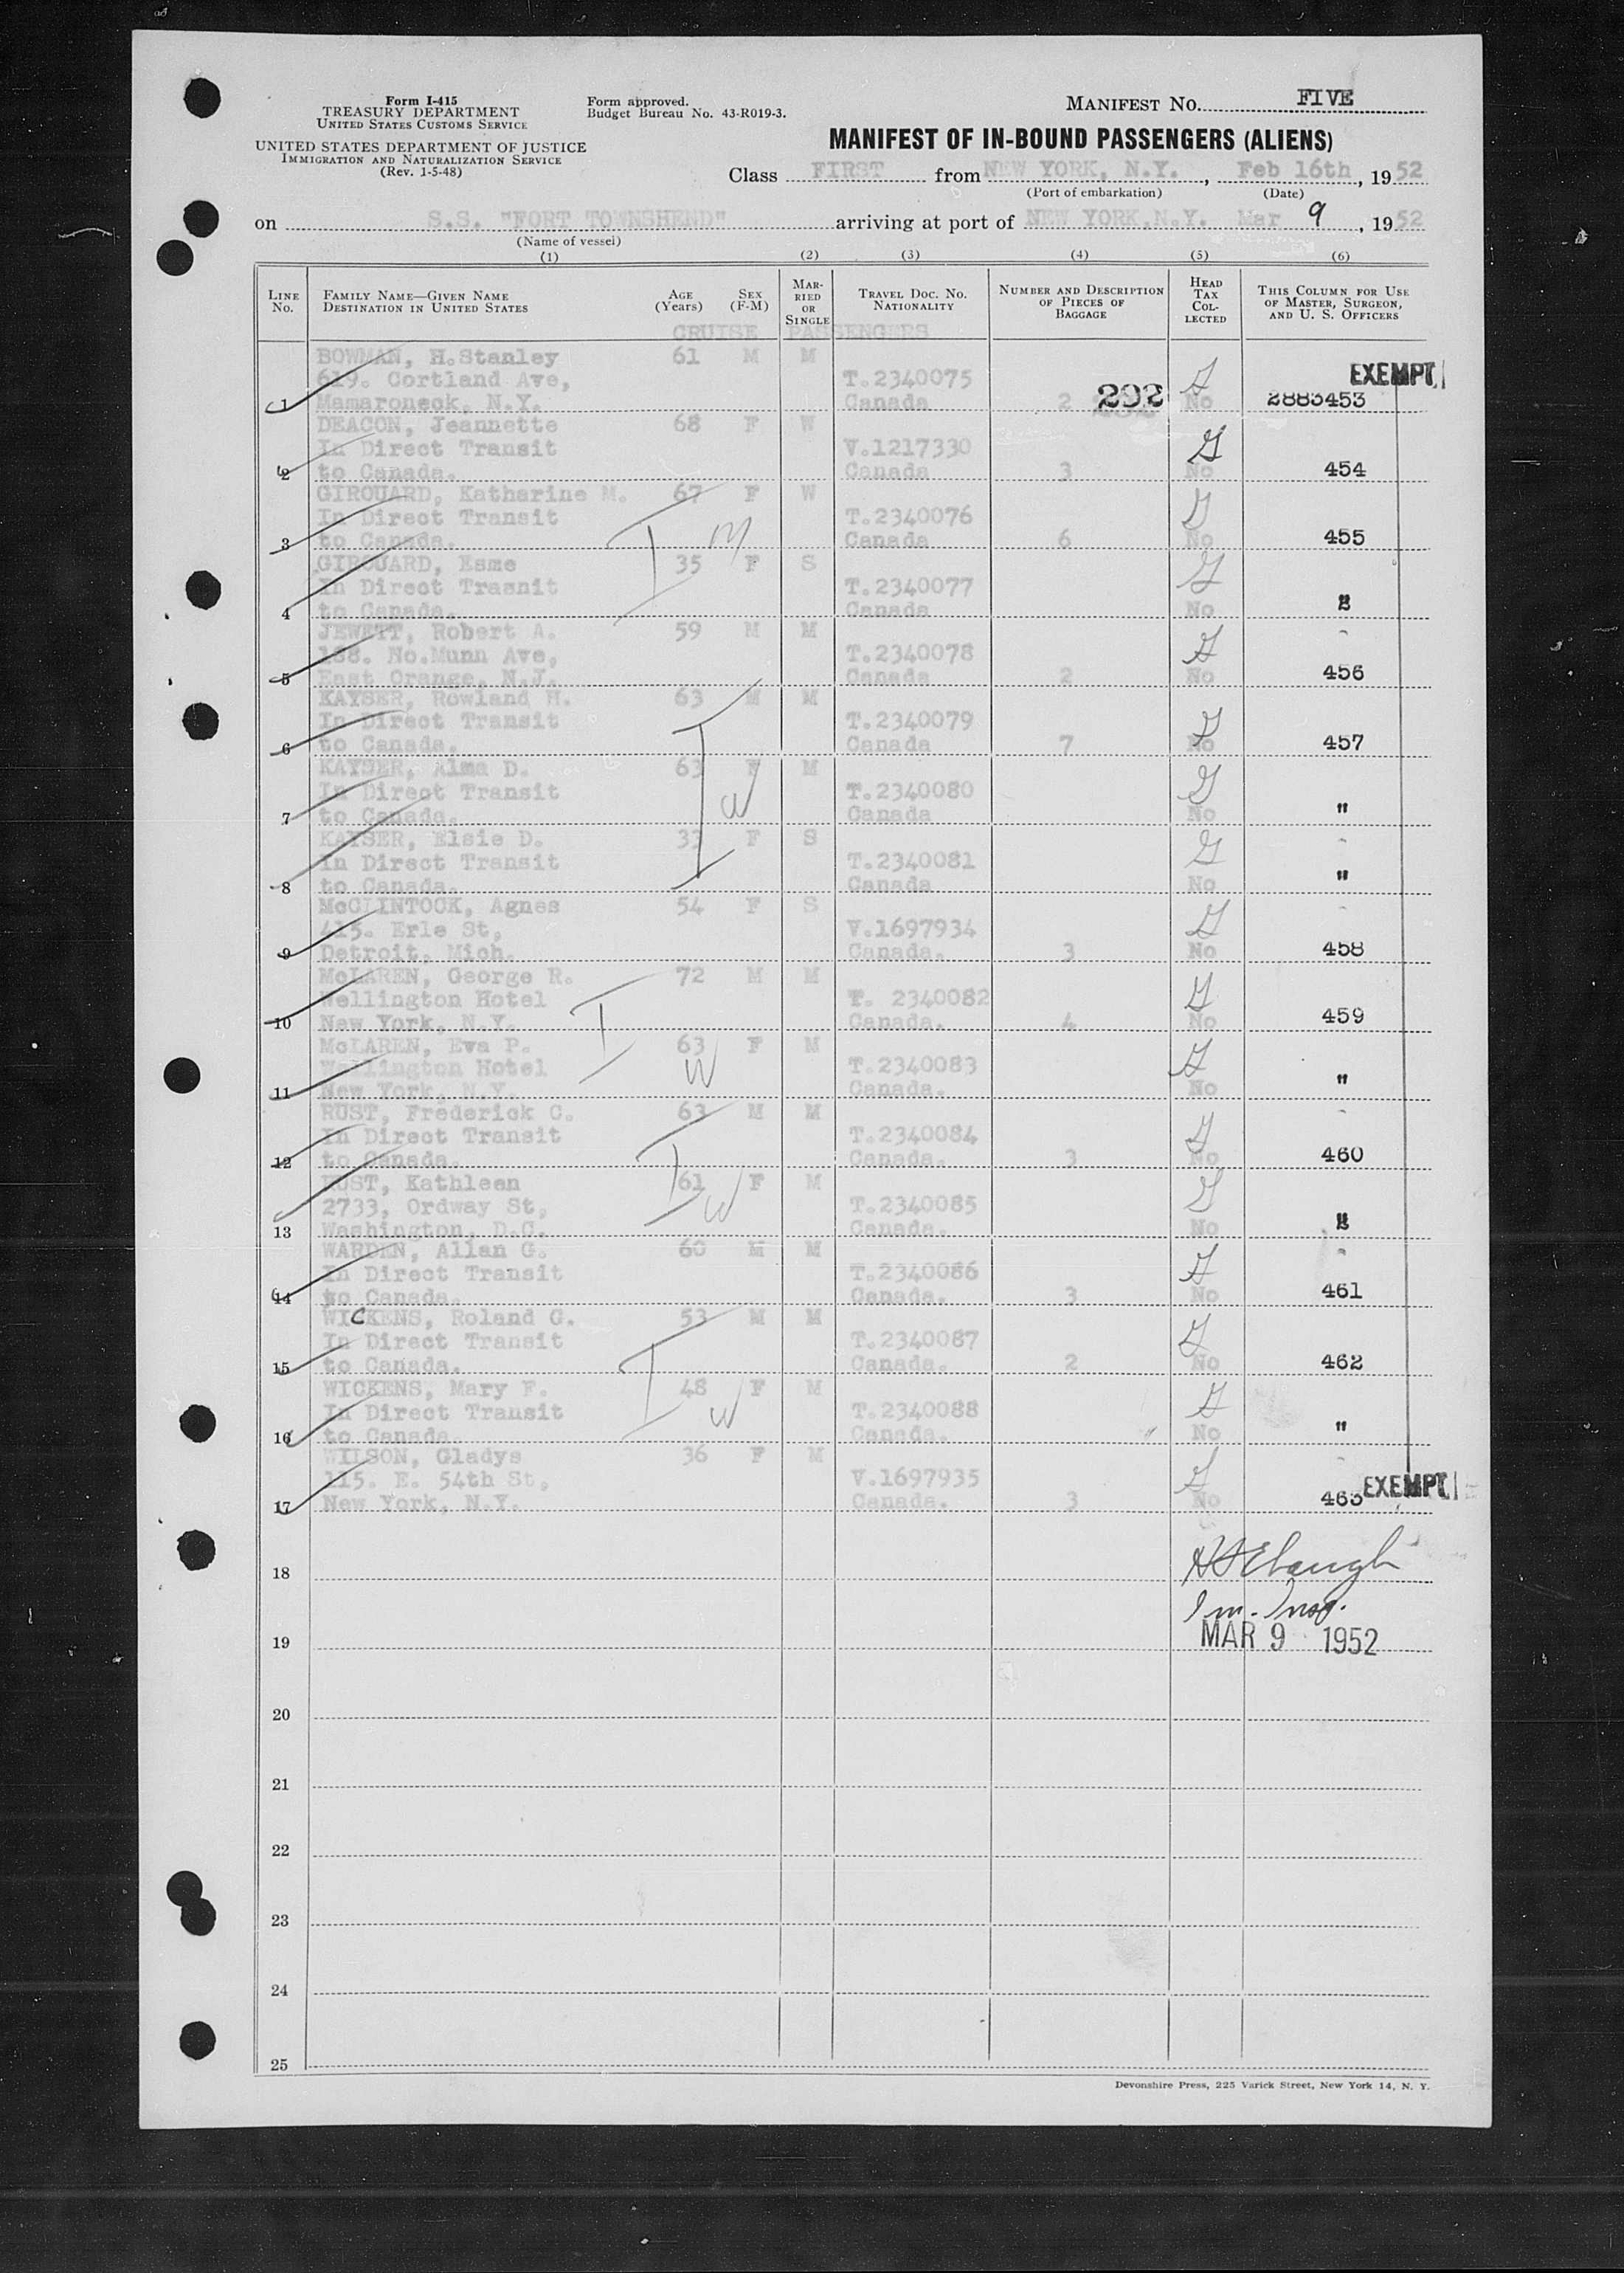 Form I-415
TREASURY DEPARTMENT
UNITED STATES CUSTOMS SERVICE
UNITED STATES DEPARTMENT OF JUSTICE
IMMIGRATION AND NATURALIZATION SERVICE
(Rev. 1-5-48)
Form approved.
Budget Bureau No. 43-R019-3.
MANIFEST NO. FIVE
MANIFEST OF IN-BOUND PASSENGERS (ALIENS)
Class FIRST from NEW YORK, N.Y. , Feb 16th , 1952
(Port of embarkation) (Date)
on S.S. "FORT TOWNSHEND" arriving at port of NEW YORK,N.Y. Mar 9 , 1952
(Name of vessel)
(1) (2) (3) (4) (5) (6)
LINE No. FAMILY NAME—GIVEN NAME DESTINATION IN UNITED STATES AGE (Years) SEX (F-M) MARRIED OR SINGLE TRAVEL DOC. NO. NATIONALITY NUMBER AND DESCRIPTION OF PIECES OF BAGGAGE HEAD TAX COLLECTED THIS COLUMN FOR USE OF MASTER, SURGEON, AND U. S. OFFICERS
CRUISE PASSENGERS
BOWMAN, H.Stanley 61 M M
619. Cortland Ave, T.2340075 EXEMPT
1 Mamaroneck, N.Y. Canada 2 292 No 2883453
DEACON, Jeannette 68 F W
In Direct Transit V.1217330
2 to Canada. Canada 3 No 454
GIROUARD, Katharine M. 67 F W
In Direct Transit T.2340076
3 to Canada. Canada 6 No 455
GIROUARD, Esme 35 F S
In Direct Trasnit T.2340077
4 to Canada. Canada No "
JEWETT, Robert A. 59 M M
188. No.Munn Ave, T.2340078
5 East Orange, N.J. Canada 2 No 456
KAYSER, Rowland H. 63 M M
In Direct Transit T.2340079
6 to Canada. Canada 7 No 457
KAYSER, Alma D. 63 F M
In Direct Transit T.2340080
7 to Canada. Canada No "
KAYSER, Elsie D. 33 F S
In Direct Transit T.2340081
8 to Canada. Canada No "
McCLINTOCK, Agnes 54 F S
415. Erle St, V.1697934
9 Detroit, Mich. Canada. 3 No 458
McLAREN, George R. 72 M M
Wellington Hotel T. 2340082
10 New York, N.Y. Canada. 4 No 459
McLAREN, Eva P. 63 F M
Wellington Hotel T.2340083
11 New York, N.Y. Canada. No "
RUST, Frederick C. 63 M M
In Direct Transit T.2340084
12 to Canada. Canada. 3 No 460
RUST, Kathleen 61 F M
2733, Ordway St, T.2340085
13 Washington, D.C. Canada. No "
WARDEN, Allan G. 60 M M
In Direct Transit T.2340086
14 to Canada. Canada. 3 No 461
WICKENS, Roland G. 53 M M
In Direct Transit T.2340087
15 to Canada. Canada. 2 No 462
WICKENS, Mary F. 48 F M
In Direct Transit T.2340088
16 to Canada Canada. " No "
WILSON, Gladys 36 F M
115. E. 54th St, V.1697935
17 New York, N.Y. Canada. 3 No 463 EXEMPT
18
Im. Insp.
19 MAR 9 1952
20
21
22
23
24
25
Devonshire Press, 225 Varick Street, New York 14, N. Y.